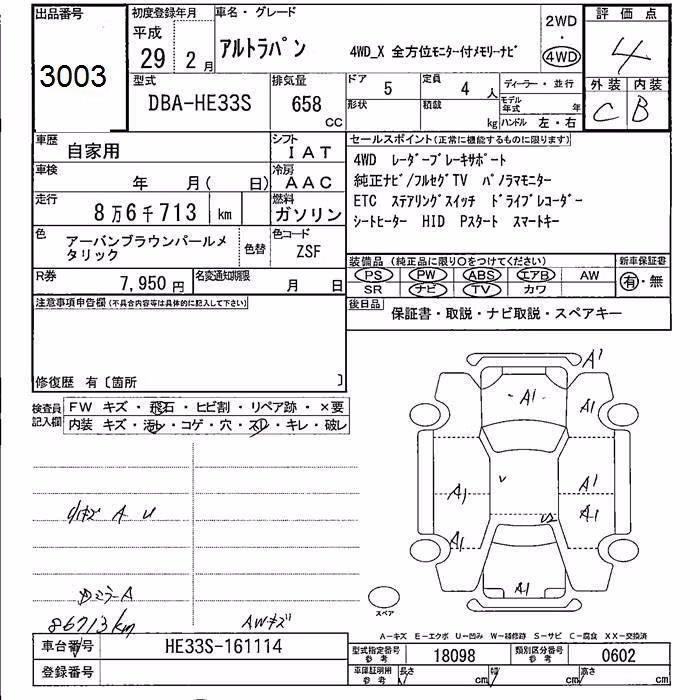 出品番号
3003
初度登録年月
平成
29年 2月
車名・グレード
アルトラパン
4WD_X 全方位モニター付メモリーナビ
2WD
・
4WD
評価点
4
外装 内装
C B
型式
DBA-HE33S
排気量
658
cc
ドア 5
定員 4 人
ディーラー・並行
形状
積載
kg
モデル年式 年
ハンドル 左・右
車歴
自家用
シフト
IAT
車検
年 月( 日)
冷房
AAC
走行
8万6千713 km
燃料
ガソリン
色
アーバンブラウンパールメ
タリック
色替
色コード
ZSF
R券
7,950 円
名変通知期限
月 日
セールスポイント(正常に機能するものに限ります)
4WD レーダーブレーキサポート
純正ナビ/フルセグTV パノラマモニター
ETC ステアリングスイッチ ドライブレコーダー
シートヒーター HID Pスタート スマートキー
装備品(純正品に限り○をつけてください)
新車保証書
PS PW ABS エアB AW
SR ナビ TV カワ
有・無
後日品
保証書・取説・ナビ取説・スペアキー
注意事項申告欄(不具合内容等は具体的に記入して下さい)
修復歴 有〔箇所 〕
検査員
記入欄
FW キズ・飛石・ヒビ割・リペア跡・×要
内装 キズ・汚レ・コゲ・穴・スレ・キレ・破レ
A U
A
86713km
AWキズ
A1
A1
A1
A1
A1
A1
A1
A1
U2
A1
スペア
A-キズ E-エクボ U-凹み W-補修跡 S-サビ C-腐食 XX-交換済
車台番号
HE33S-161114
登録番号
型式指定番号
参考
18098
類別区分番号
参考
0602
車庫証明用
参考
長さ cm
幅 cm
高さ cm